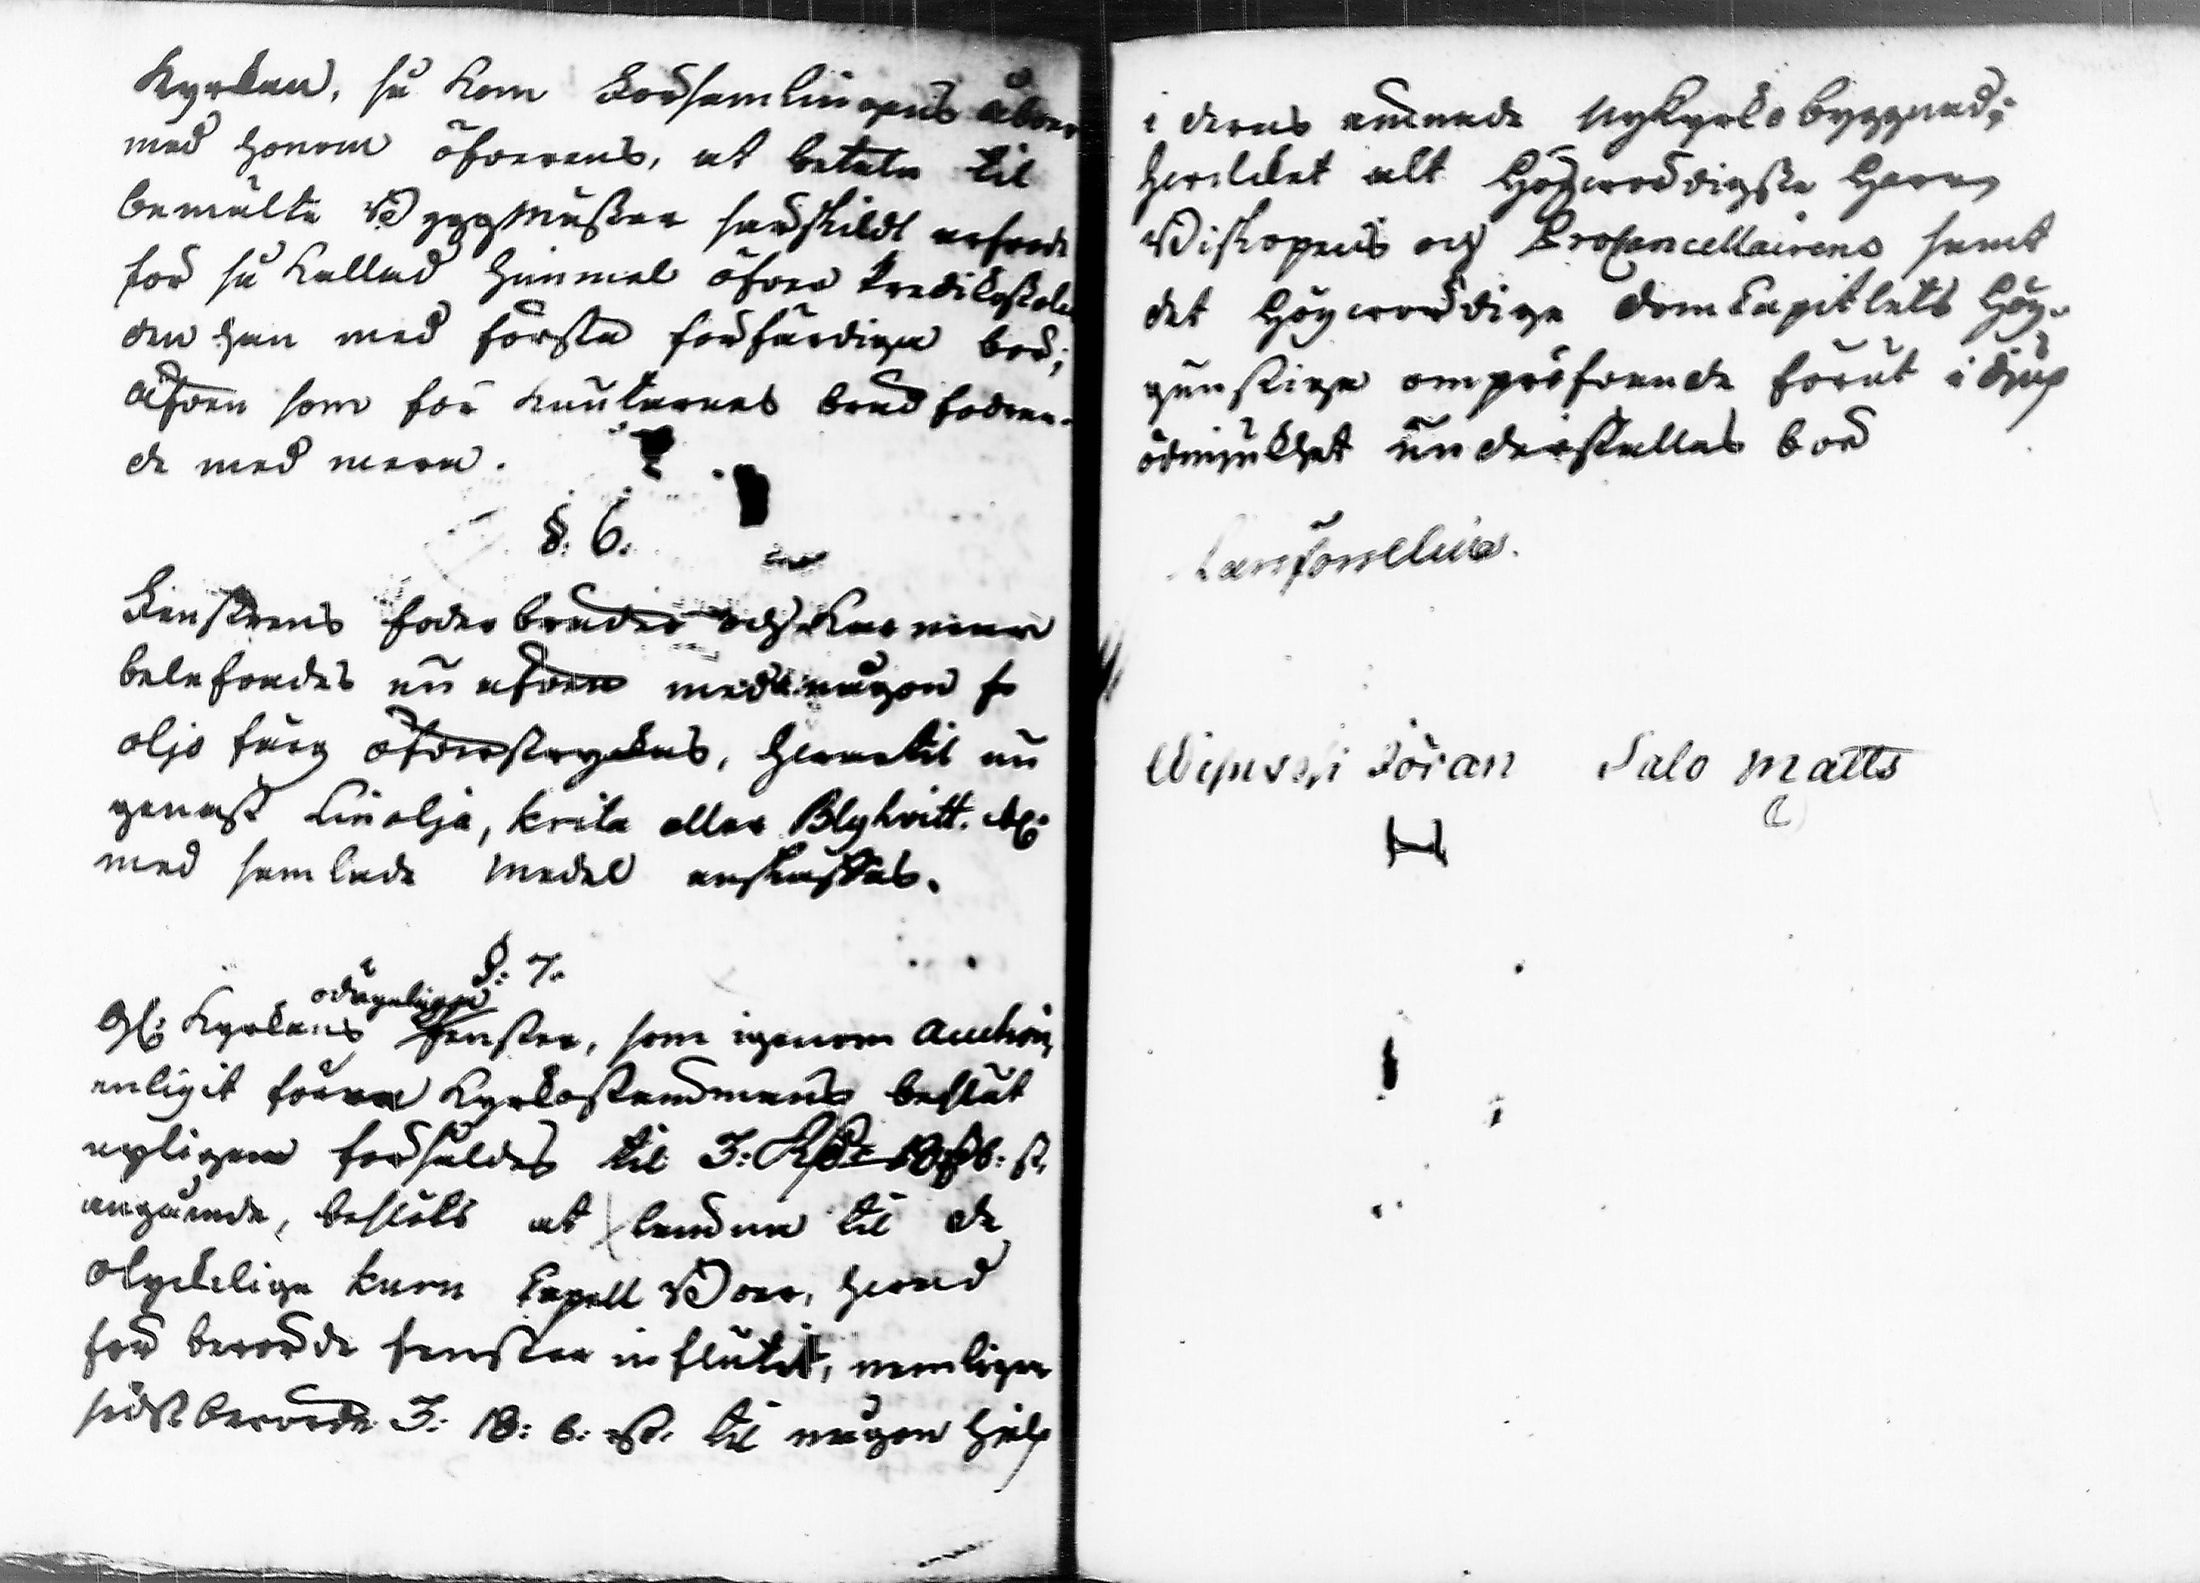 Kyrkan, så kom Församlingens äfven
med honom öfverens, at betala til
bemälte Byggmästare särskildt arfvode
för så kallad Himmel öfver Predikostolen
den han med första förfärdiga bör;
äfven som för knutarnas brädfodran-
de med mera.
§: 6.
Fenstrens foderbräder och Karmar
belefvades nu äfven med någon
oljo färg öfverstrykas, hvartil nu
genast Linolja, krita eller Blyhvitt &c:
med samlade medel anskaffas.
§: 7.
odugeliga
Gl: Kyrkans fenster, som igenom Auction,
enligit förra Kyrkostämmans beslut
nyligen försåldes til 3: 18: 6: st.
angående, beslöts at lemna til de
olyckelige Capell Boer, hvad
för berörde fenster influtit, nemligen
sidst berörde 3: 18: 6: st. til någon hjelp
i deras ämnade Nykyrko byggnad;
hvilket alt Högvördigste Herr
Biskopens och ProCancellairens samt
det Högvördige DomCapitlets Hög-
gunstiga ompröfvande förut i djup
ödmjukhet understellas bör
Jöran Salo Matts